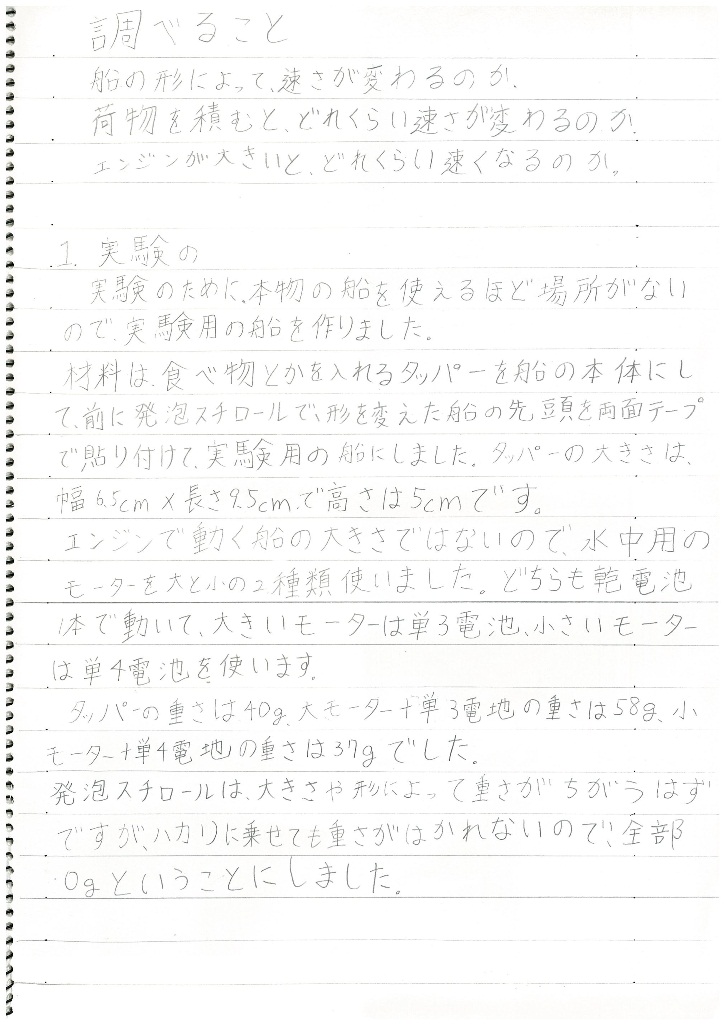 調べること
船の形によって、速さが変わるのか。
荷物を積むと、どれくらい速さが変わるのか。
エンジンが大きいと、どれくらい速くなるのか。
1. 実験の
実験のために、本物の船を使えるほど場所がない
ので、実験用の船を作りました。
材料は、食べ物とかを入れるタッパーを船の本体にし
て、前に発泡スチロールで、形を変えた船の先頭を両面テープ
で貼り付けて、実験用の船にしました。タッパーの大きさは、
幅6.5cm×長さ9.5cm、で高さは5cmです。
エンジンで動く船の大きさではないので、水中用の
モーターを大と小の2種類使いました。どちらも乾電池
1本で動いて、大きいモーターは単3電池、小さいモーター
は単4電池を使います。
タッパーの重さは40g、大モーター+単3電地の重さは58g、小
モーター+単4電地の重さは37gでした。
発泡スチロールは、大きさや形によって重さがちがうはず
ですが、ハカリに乗せても重さがはかれないので、全部
0gということにしました。